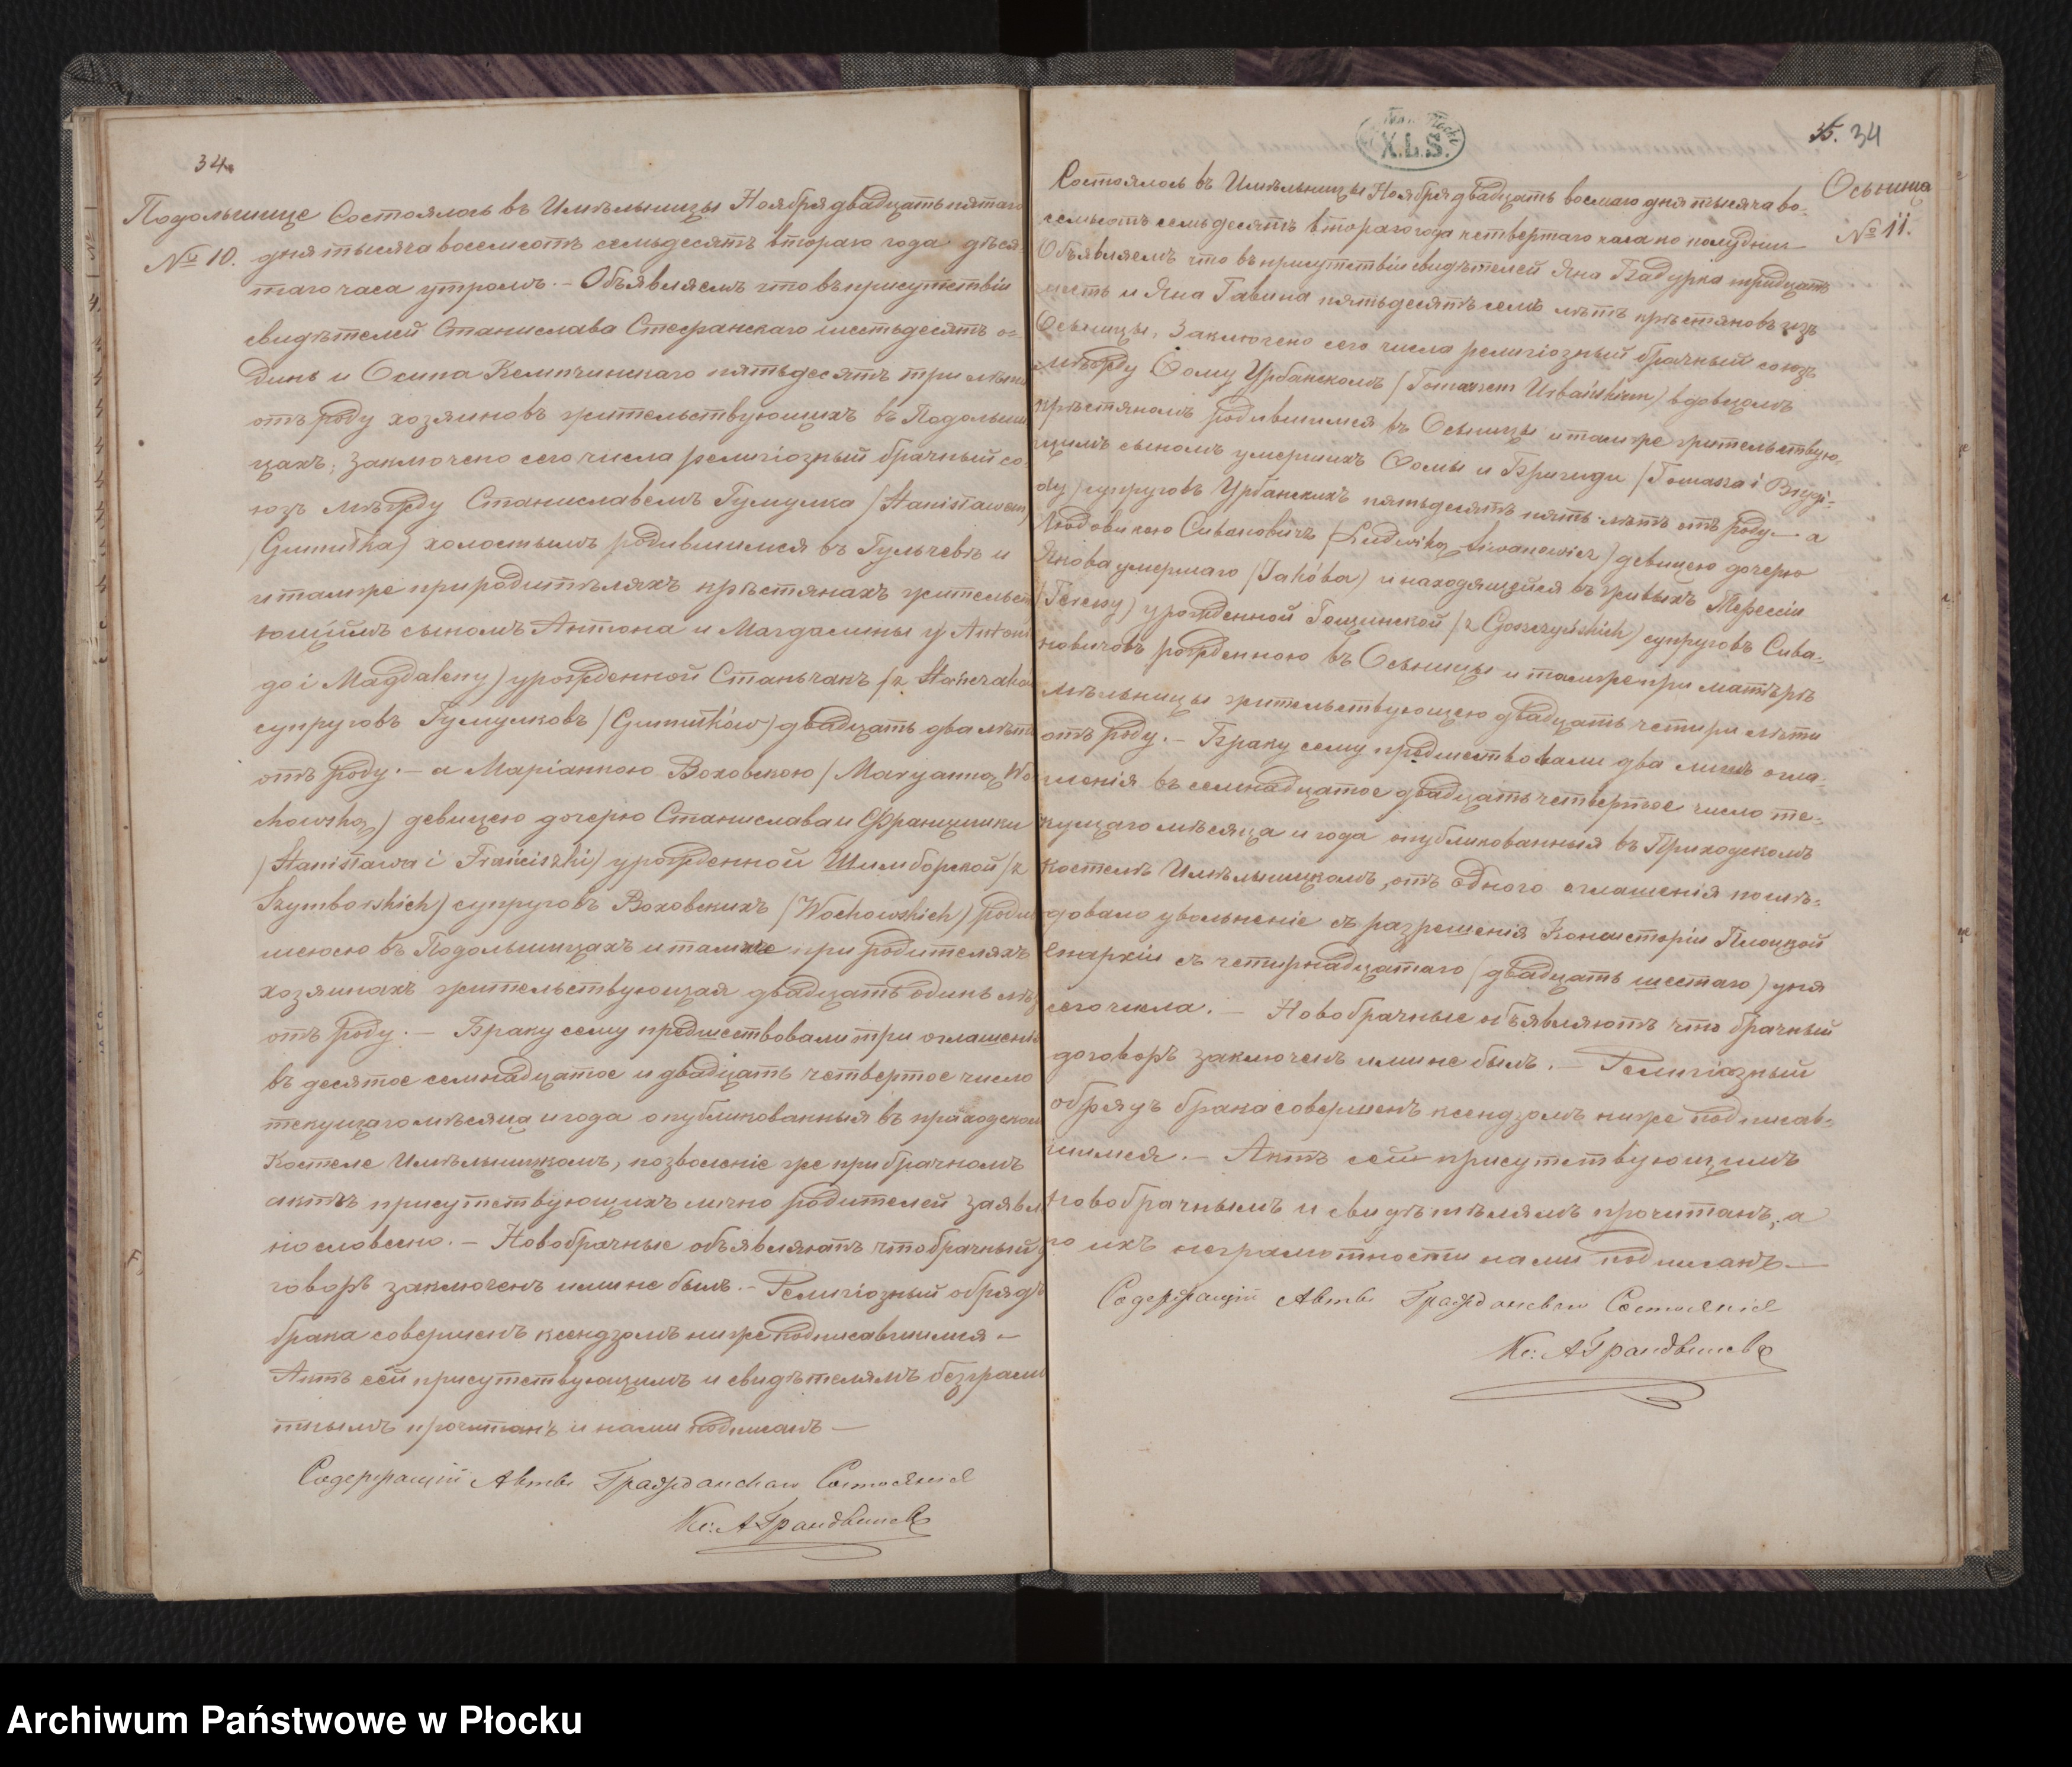 34.
Подольшице
№ 10.
Состоялось въ Имѣльницы Ноября двадцать пятаго
дня тысяча восемсотъ семьдесятъ втораго года деся
таго часа утромъ. – Объявляемъ что въ присутствіи
свидѣтелей Станислава Стефанскаго шестьдесятъ о-
динъ и Осипа Кемпчинскаго пятьдесятъ три лѣта
отъ роду хозяиновъ жительствующихъ въ Подольши
цахъ, заключено сего числа религіозный брачный со
юзъ мѣжду Станиславемъ Гумулка (Stanisławem
Gumułka) холостымъ родившимся въ Гульчевѣ и
и тамже при родитѣляхъ крѣстянахъ жительств
ющимъ сыномъ Антона и Магдалины (Antonie
go i Magdaleny) урожденной Станьчакъ (z Stańczaków
супруговъ Гумулковъ (Gumułków) двадцать два лѣта
отъ роду. – а Маріанною Воховскою (Maryanną Wo
chowską) девицею дочерю Станислава и Францишки
(Stanisława i Franciszki) урожденной Шимборской (z
Szymborskich) супруговъ Воховскихъ (Wochowskich) родив
шеюсю въ Подольшицахъ и тамже при родителяхъ
хозяинахъ жительствующая двадцать одинъ лѣтъ
отъ роду. – Браку сему предшествовали три оглашенія
въ десятое семнадцатое и двадцать четвертое число
текущаго мѣсяца и года опубликованныя въ приходском
Костеле Имѣльницкомъ, позволеніе же при брачномъ
актѣ присутствующихъ лично родителей заявле
но словесно. – Новобрачные объявляютъ что брачный до
говоръ заключенъ ими не былъ. – Религіозный обрядъ
брака совершенъ ксендзомъ ниже подписавшимся –
Актъ сей присутствующимъ и свидѣтелямъ безграмо
тнымъ прочитанъ и нами подписанъ –
Содержащій Акты Гражданскаго Состоянія
Кс: А
X.L.S.
35. 34
Осьница
№ 11.
Состоялось въ Имѣльницы Ноября двадцать восмаго дня тысяча во-
семьсотъ семьдесятъ втораго года четвертаго часа по полудни
Объявляемъ что въ присутствіи свидѣтелей Яна Бадурка тридцать
шесть и Яна Гавина пятьдесятъ семь лѣтъ крѣстяновъ изъ
Осьницы, заключено сего числа религіозный брачный союзъ
мѣжду Фому Урбанскомъ (Tomaszem Urbańskim) вдовцомъ
крѣстяномъ родившимся въ Осьницы и тамже жительствую-
щимъ сыномъ умершихъ Фомы и Бригиди (Tomasza i Brygi-
dy) супруговъ Урбанскихъ пятьдесятъ пять лѣтъ отъ роду – а
Людовикою Сивановичъ (Ludwiką Siwanowicz) девицею дочерю
Якова умершаго (Jakóba) и находящейся въ живыхъ Терессіи
(Teressy) урожденной Гощинской (z Gosczyńskich) супруговъ Сива-
новичовъ рожденною въ Осьницы и тамже при матѣрѣ
мѣльницы жительствующею двадцать четыри лѣта
отъ роду. – Браку сему предшествовали два лишъ огла-
шенія въ семнадцатое двадцать четвертое число те-
кущаго мѣсяца и года опубликованныя въ Приходскомъ
Костелѣ Имѣльницкомъ, отъ одного оглашенія послѣ-
довало увольненіе съ разрешенія Консисторіи Плоцкой
Епархіи съ четирнадцатаго (двадцать шестаго) дня
сего числа. – Новобрачные объявляютъ что брачный
договоръ заключенъ ими не былъ. – Религіозный
обрядъ брака совершенъ ксендзомъ ниже подписав-
шимся. – Актъ сей присутствующимъ
новобрачнымъ и свидѣтѣлямъ прочитанъ, а
по ихъ неграмотности нами подписанъ –
Содержащій Акты Гражданскаго Состоянія
Кс: А
Archiwum Państwowe w Płocku